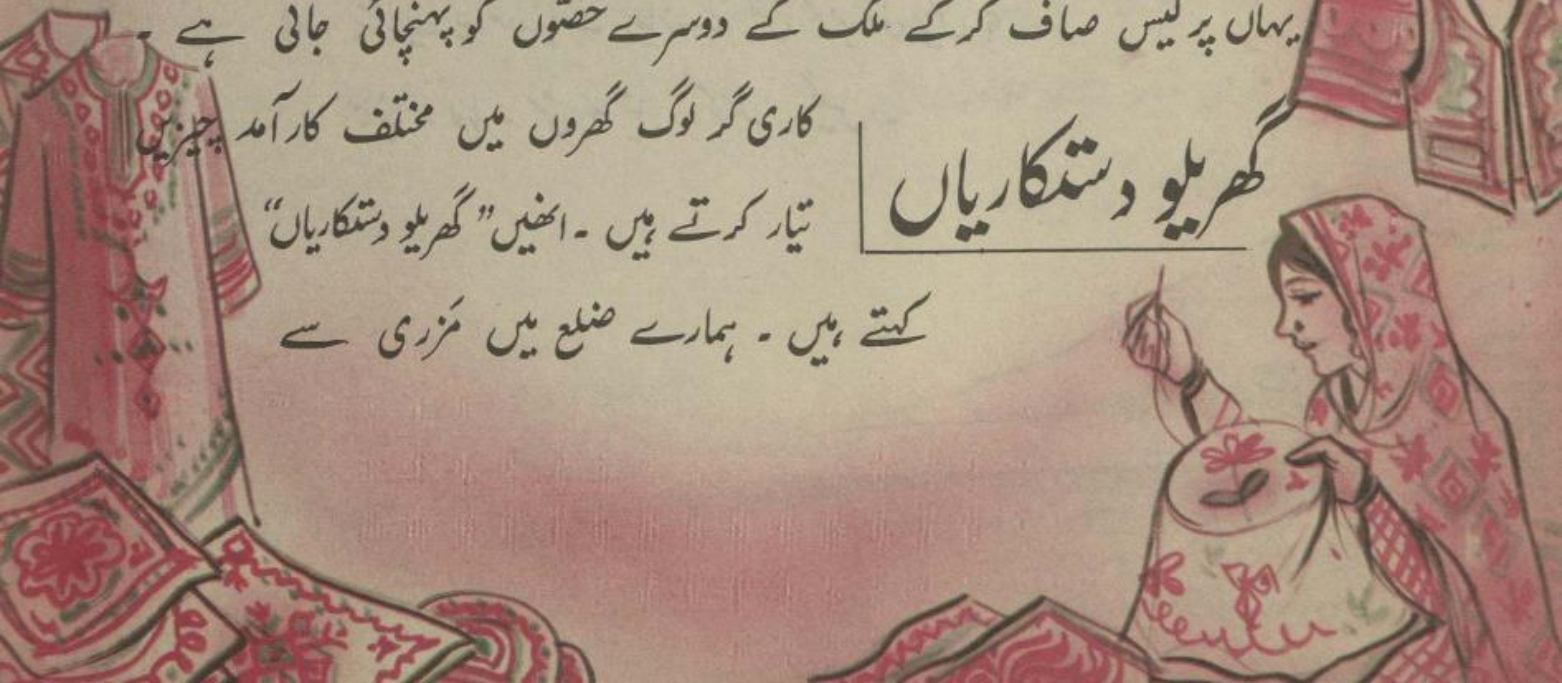 یہاں پر گیس صاف کرکے ملک کے دوسرے حصّوں کو پہنچائی جاتی ہے ۔
گھریلو دستکاریاں
کاری گر لوگ گھروں میں مختلف کارآمد چیزیں
تیار کرتے ہیں ۔ انھیں ”گھریلو دستکاریاں“
کہتے ہیں ۔ ہمارے ضلع میں مَزری سے